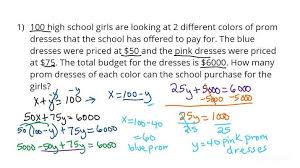 1) 100 high school girls are looking at 2 different colors of prom
dresses that the school has offered to pay for. The blue
dresses were priced at $50 and the pink dresses were priced
at $75. The total budget for the dresses is $6000. How many
prom dresses of each color can the school purchase for the
girls?
-y -y
x+y=100 → x=100-y
50x+75y=6000
50(100-y)+75y=6000
5000-50y+75y=6000
x=100-40
=60
blue prom
25y+5000=6000
-5000 -5000
25y=1000
25 25
y=40 pink prom
dresses